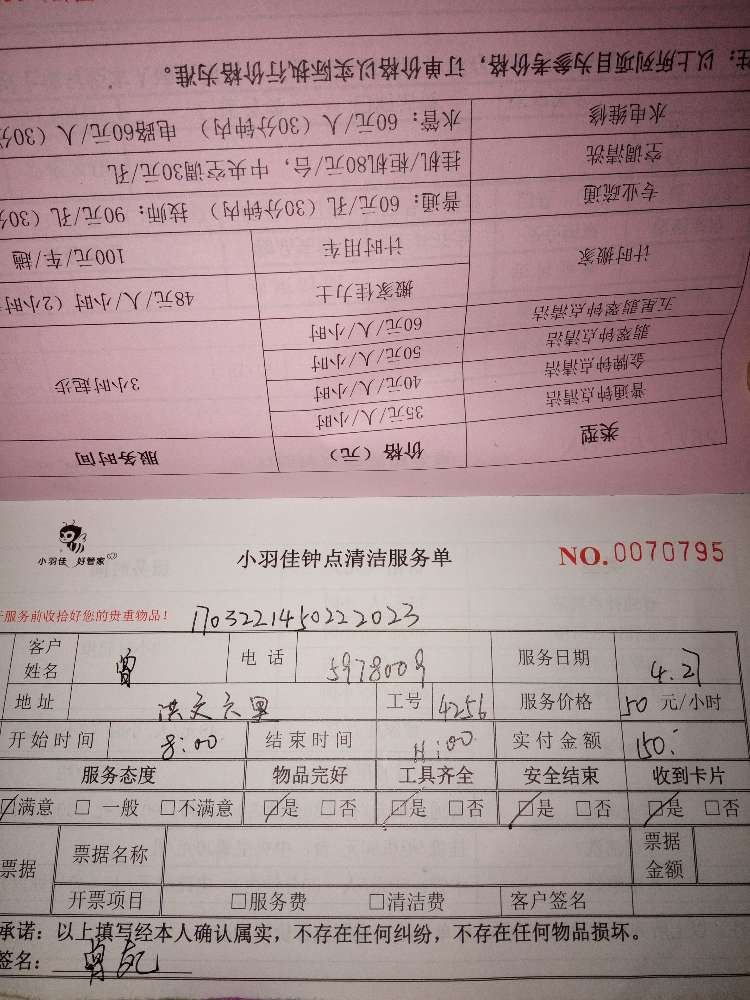 类型 价格（元） 服务时间
普通钟点清洁 35元/人/小时 3小时起步
金牌钟点清洁 40元/人/小时
翡翠钟点清洁 50元/人/小时
五星翡翠钟点清洁 60元/人/小时
计时搬家 搬家佳力士 48元/人/小时（2小时
计时用车 100元/车/趟
专业疏通 普通：60元/孔（30分钟内） 技师：90元/孔（30分
空调清洗 挂机/柜机80元/台，中央空调30元/孔
水电维修 水管：60元/人（30分钟内） 电路60元/人（30分
注：以上所列项目为参考价格，订单价格以实际执行价格为准。
小羽佳 好管家 小羽佳钟点清洁服务单 NO.0070795
服务前收拾好您的贵重物品！ 1703221450222023
客户姓名 曾 电话 5978009 服务日期 4.27
地址 洪文六里 工号 4256 服务价格 50 元/小时
开始时间 8:00 结束时间 11:00 实付金额 150
服务态度 物品完好 工具齐全 安全结束 收到卡片
☑满意 □一般 □不满意 ☑是 □否 ☑是 □否 ☑是 □否 ☑是 □否
票据 票据名称 票据金额
开票项目 □服务费 □清洁费 客户签名
承诺：以上填写经本人确认属实，不存在任何纠纷，不存在任何物品损坏。
签名： 曾